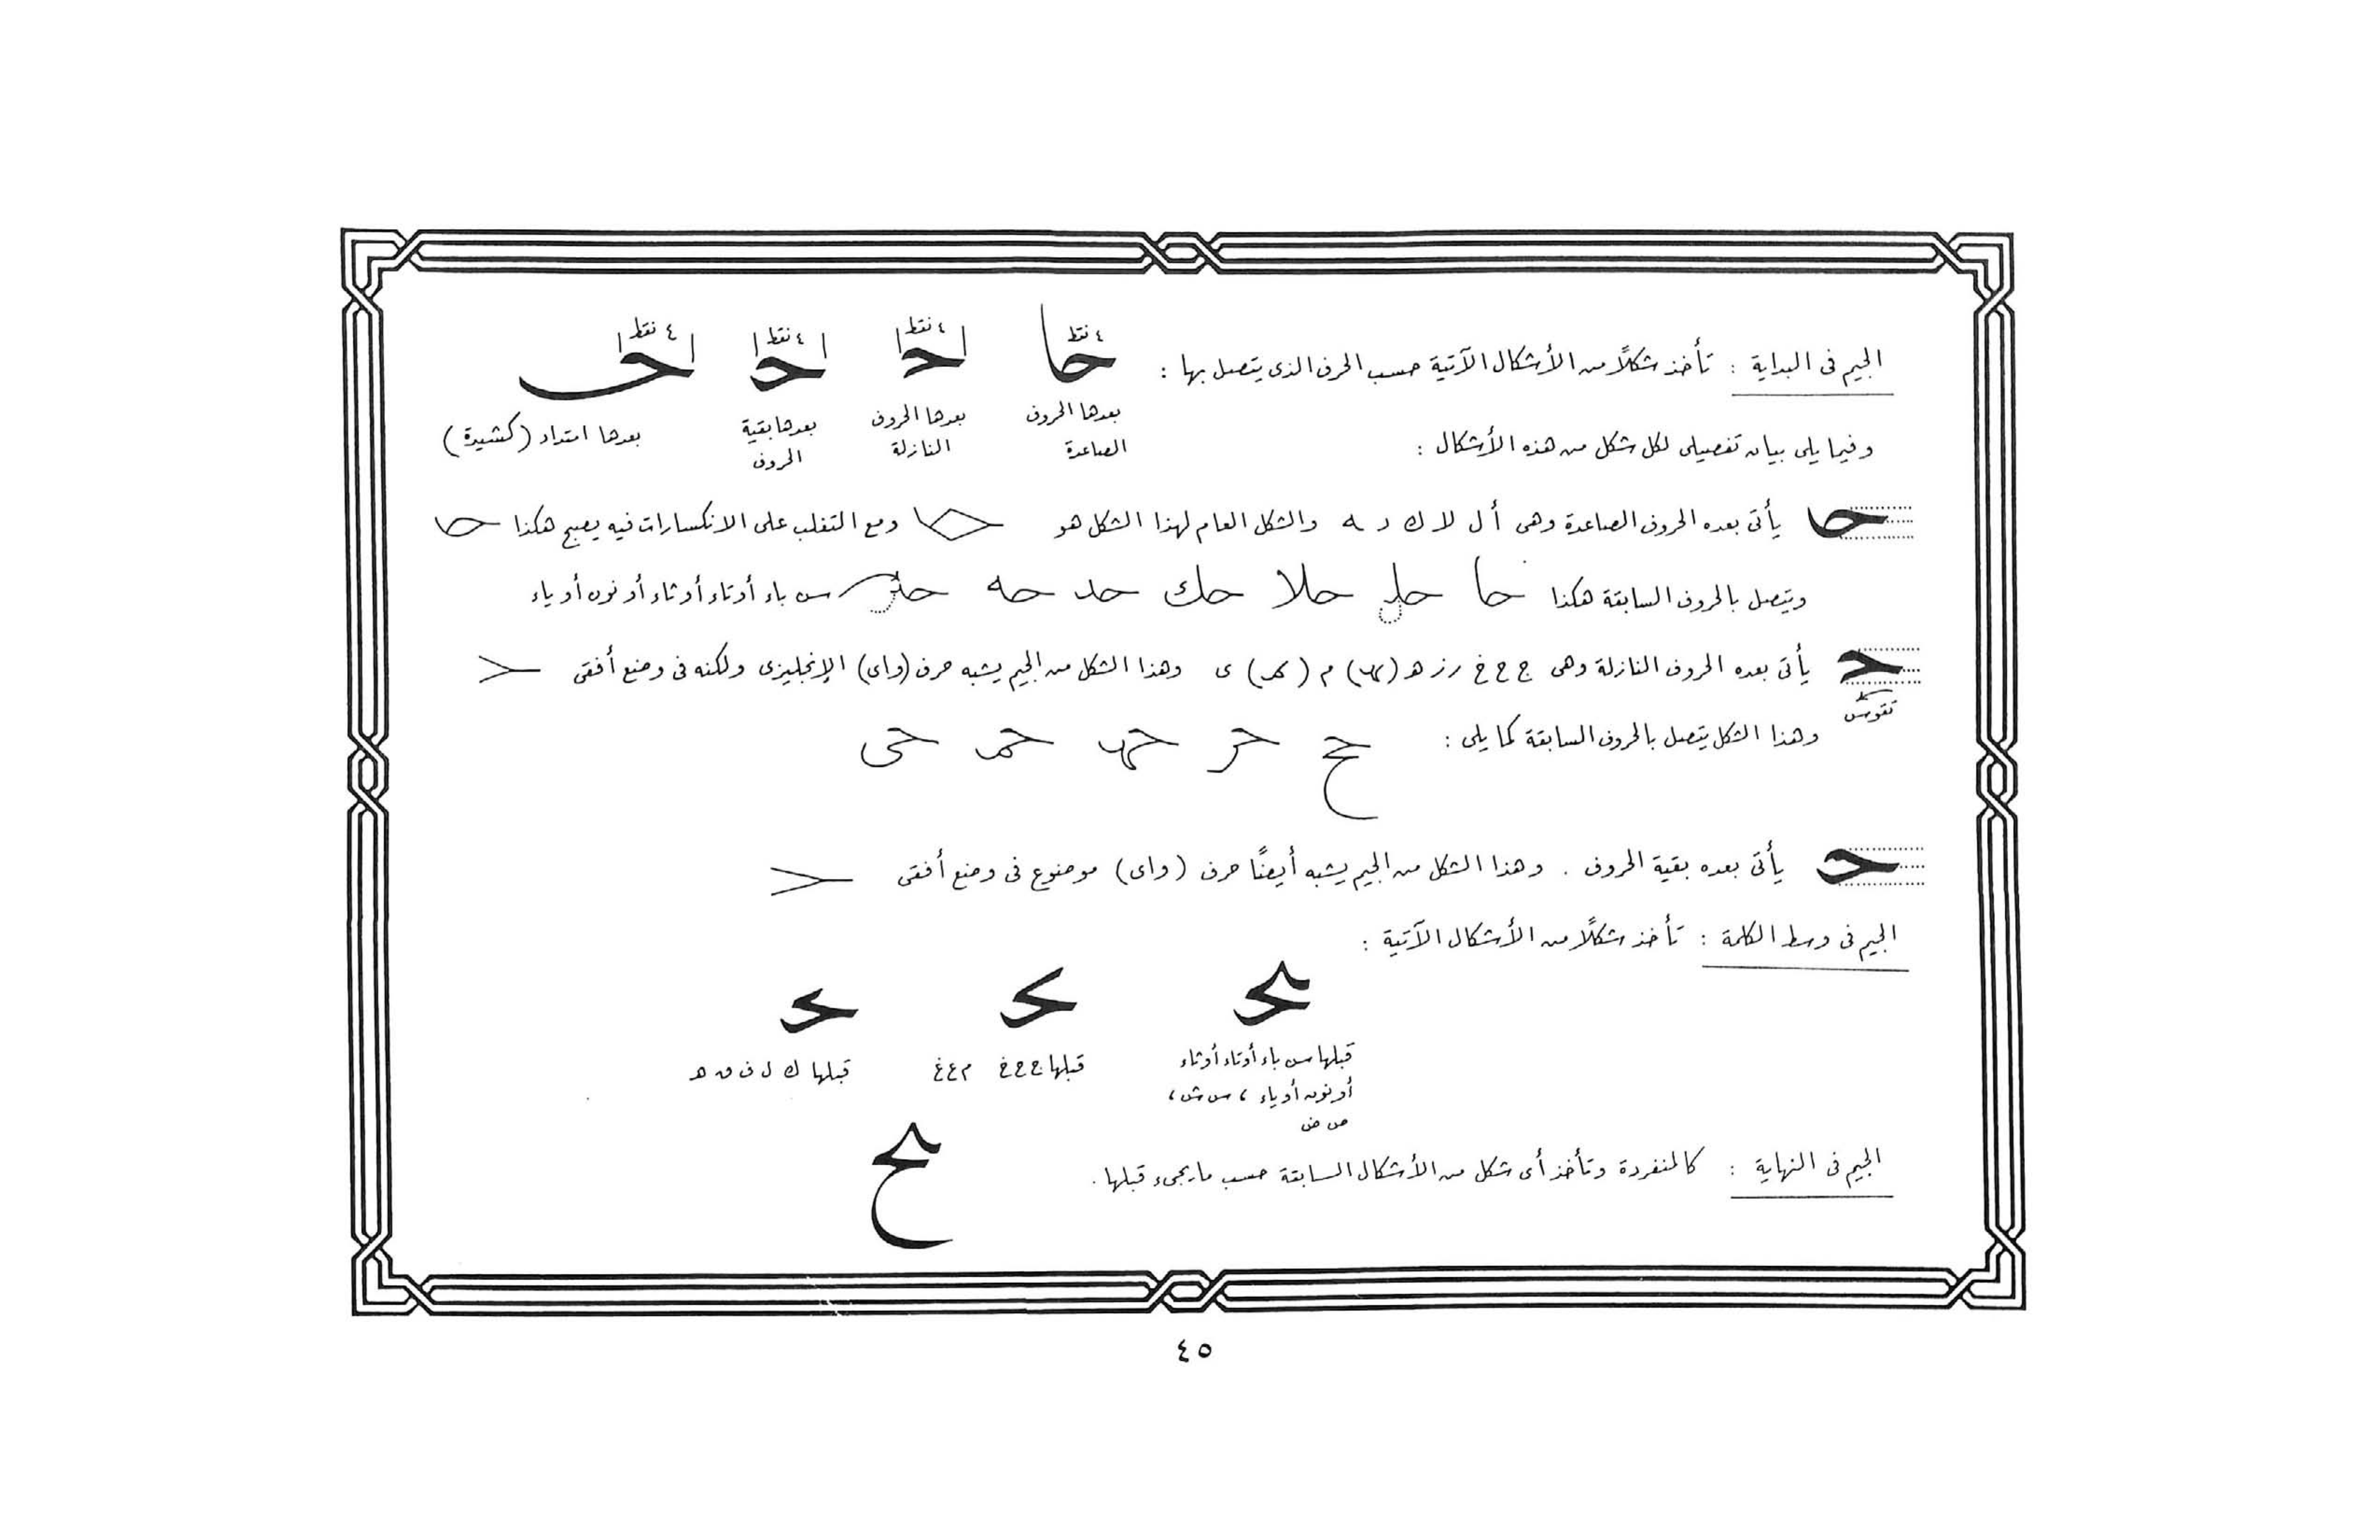 الجيم فى البداية : تأخذ شكلاً من الأشكال الآتية حسب الحرف الذى يتصل بها :
حا ٤ نقط
حـ ٤ نقط
حـ ٤ نقط
حـ ٤ نقط
بعدها الحروف الصاعدة
بعدها الحروف النازلة
بعدها بقية الحروف
بعدها امتداد (كشيدة)
وفيما يلى بيان تفصيلى لكل شكل من هذه الأشكال :
حـ يأتى بعده الحروف الصاعدة وهى أ ل لا ك د ه والشكل العام لهذا الشكل هو ومع التغلب على الانكسارات فيه يصبح هكذا
ويتصل بالحروف السابقة هكذا حا حل حلا حك حد حه س باء أو تاء أو ثاء أو نون أو ياء
حـ يأتى بعده الحروف النازلة وهى ج ح خ ر ز هـ (ـهـ) م (ـمـ) ى وهذا الشكل من الجيم يشبه حرف (واى) الإنجليزى ولكنه فى وضع أفقى
تقوس
وهذا الشكل يتصل بالحروف السابقة كما يلى : حح حر حهـ حمـ حى
حـ يأتى بعده بقية الحروف . وهذا الشكل من الجيم يشبه أيضًا حرف (واى) موضوع فى وضع أفقى
الجيم فى وسط الكلمة : تأخذ شكلاً من الأشكال الآتية :
ـحـ ـحـ ـحـ
قبلها س باء أو تاء أو ثاء
أو نون أو ياء ، س ش ،
ص ض
قبلها ج ح خ م ع غ
قبلها ك ل ف ق هـ
الجيم فى النهاية : كالمنفردة وتأخذ أى شكل من الأشكال السابقة حسب ما يجىء قبلها .
ـح
٤٥